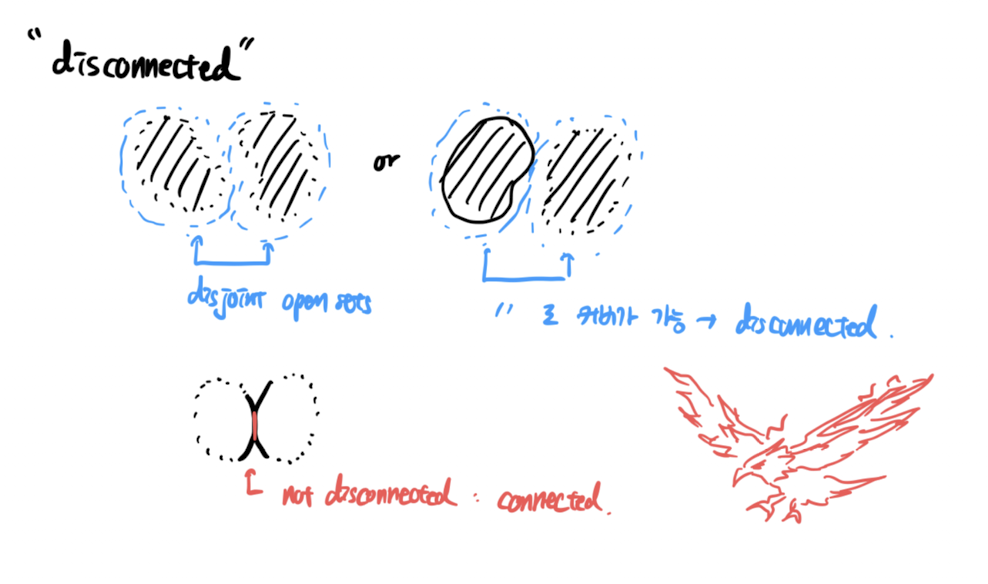 "disconnected"
or
disjoint open sets
〃 로 커버가 가능 → disconnected.
not disconnected : connected.